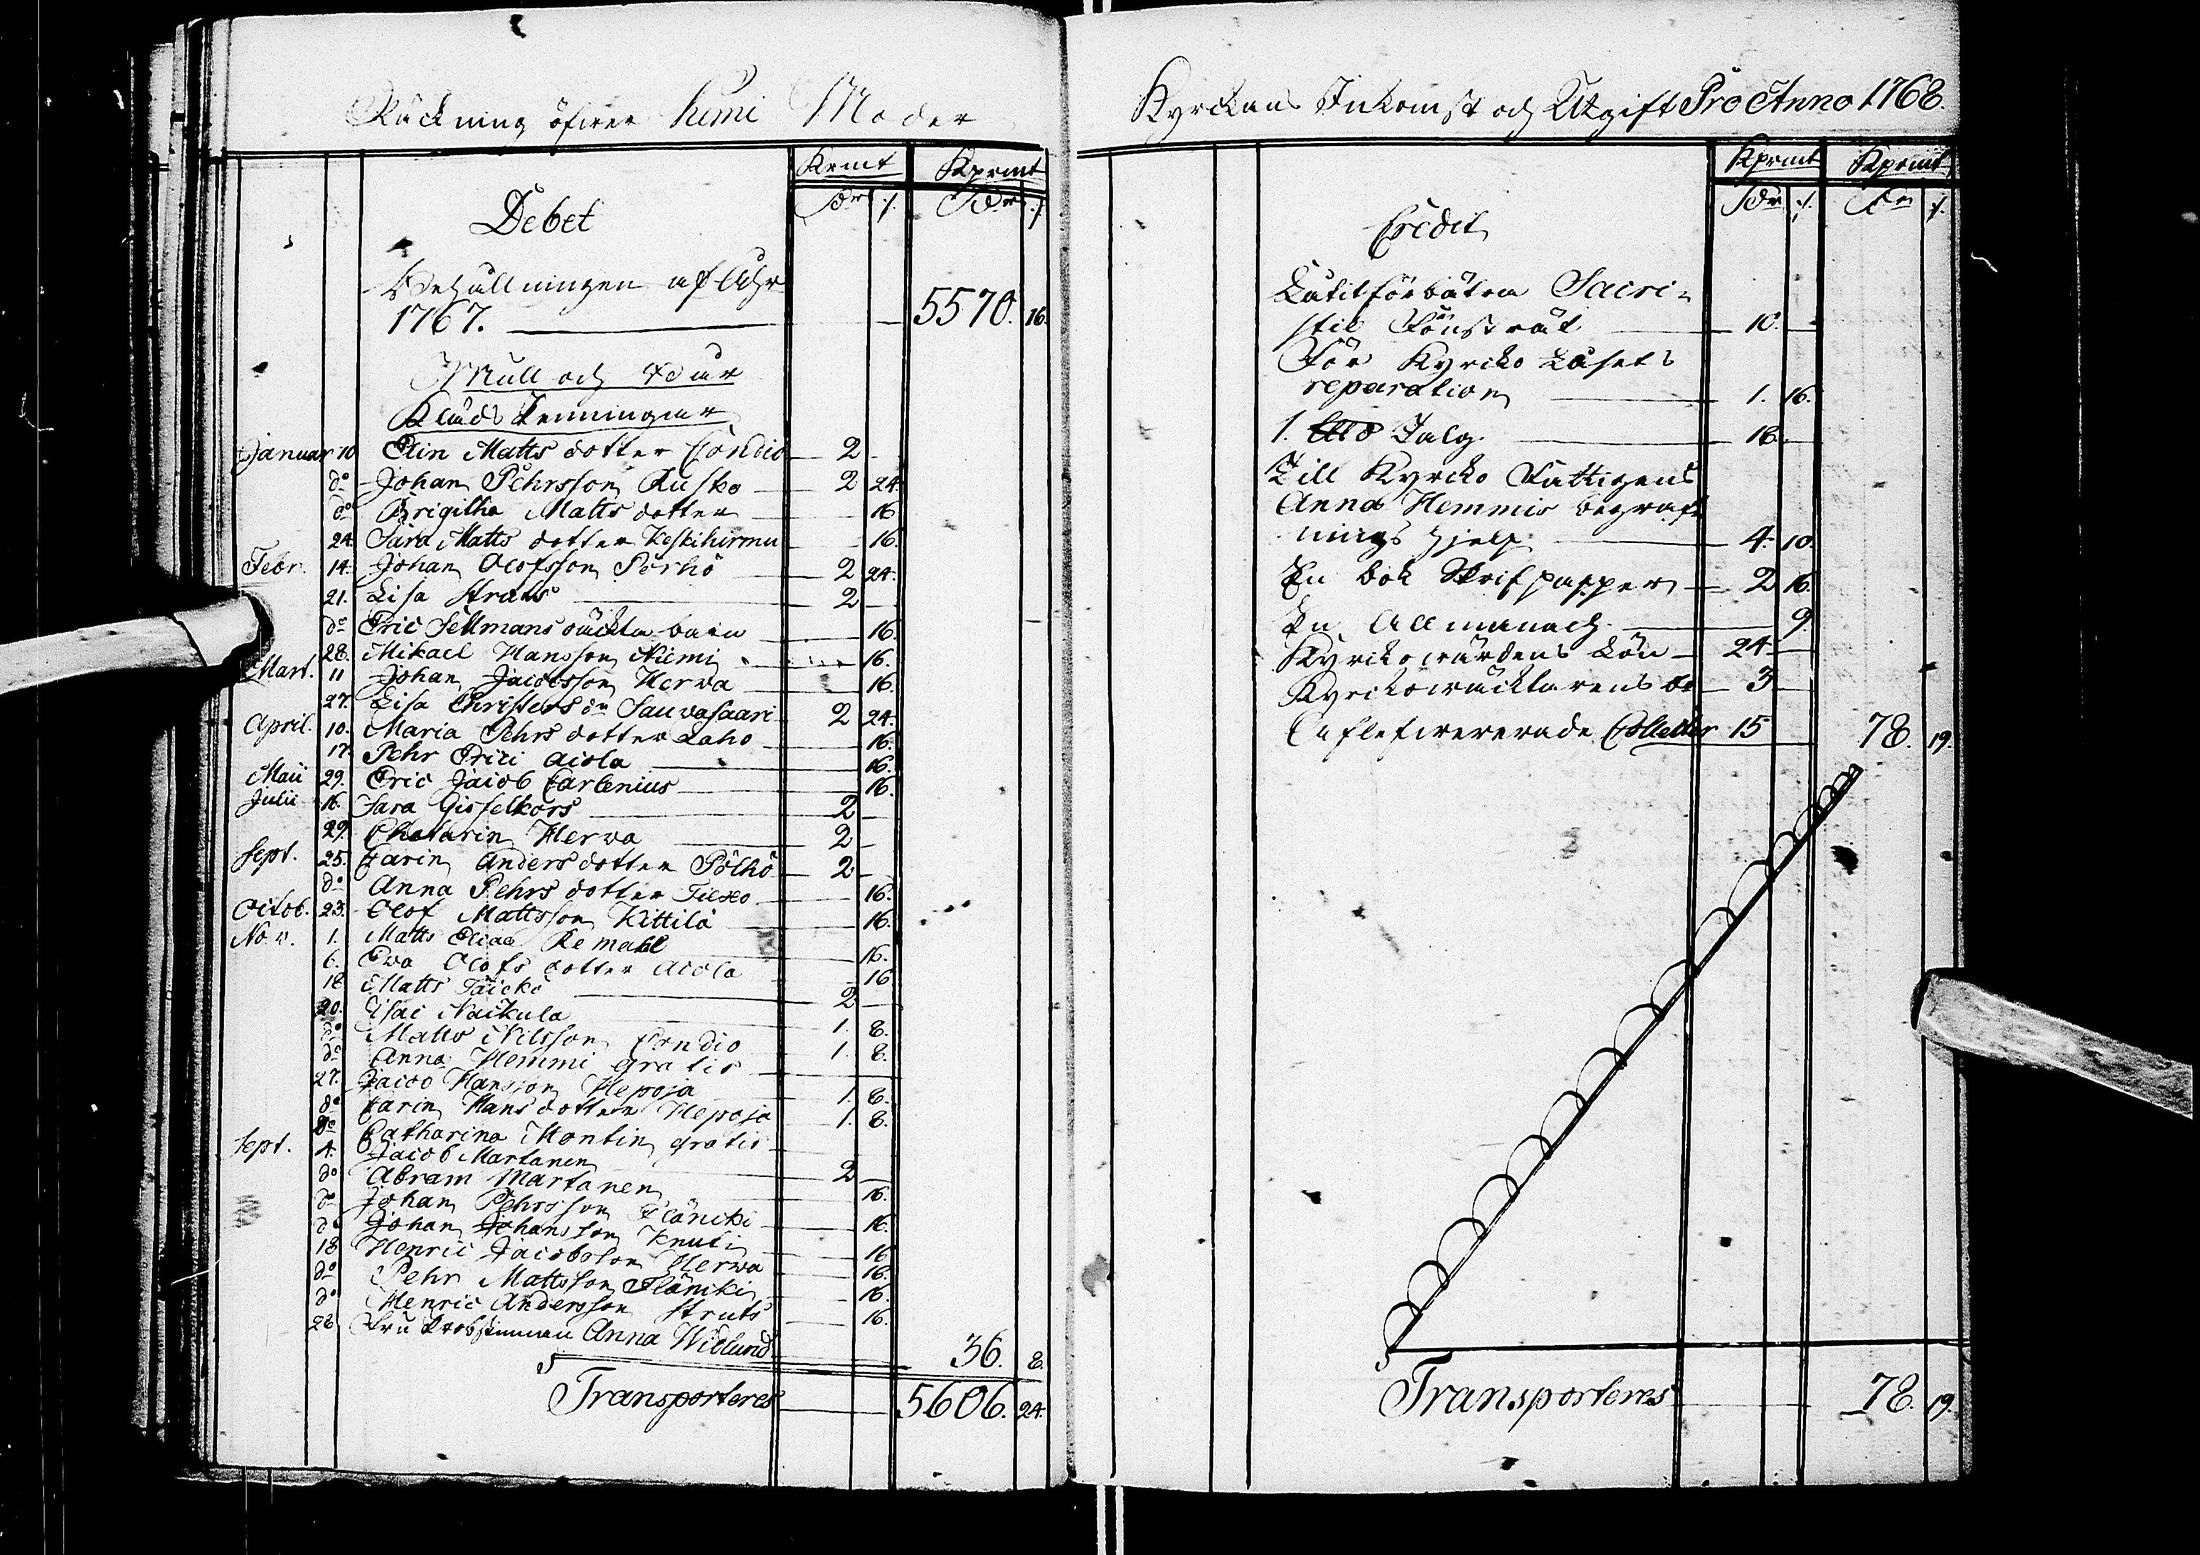 Räckning öfwer Kimi Moder
Krmt Kprmt
Dr ./. Dr ./.
Debet
Behållningen af Åhr
1767. 5570. 16.
Mull och
Kläds Penningar
Januar 10 Elin Matts dotter Condio 2
do Johan Pehrsson Rusko 2 24.
do Brigitha Matts dotter 16
24. Sara Matts dotter Keskihirmu 16.
Febr. 14. Johan Olofsson Pörhö 2 24.
21. Lisa Struts 2
do Eric Fellmans barn 16.
28. Mikael Hansson Niemi 16.
Mart. 11 Johan Jacobsson Herva 16.
27. Lisa Christers dr Sauvasaari 2 24.
April. 10. Maria Pehrs dotter Laho 16.
17. Pehr Erici Aiola 16.
Maii 29. Eric Jacob Carlenius 16.
Julii 16. Sara Gisselkors 2
29. Chatarin Herva 2
Sept. 25. Carin Anders dotter Pölhö 2
do Anna Pehrs dotter 16.
Octob. 23. Olof Mattsson Kittilä 16.
Nov. 1. Matts Elias Remahl 16.
6. Ewa Olofs dotter Aiola 16
18 Matts Täickö 2
20. Isai Naikula 1. 8.
do Matts Nilsson Condio 1. 8.
do Anna Hemmi gratis
27. Jacob Hansson Hepoja 1. 8.
do Carin Hans dotter Hepoja 1. 8.
do Catharina Montin gratis
Sept. 4. Jacob Martanen 2
do Abram Martanen 16.
do Johan Pehrsson Fläncki 16.
do Johan Johansson Knuti 16
18 Henric Jacobsson Herwa 16.
do Pehr Mattsson Fläncki 16.
do Henric Andersson Struts 16.
28 Fru Probstinnan Anna Widlund
36. 8.
Transporteres 5606. 24.
Kyrckans Inkomst och Utgift Pro Anno 1768.
Kprmt Kprmt
Dr ./. Dr ./.
Credit
Låtit förbätra Sacri-
stie Fönsträt 10.
För Kyrcko Låsets
reparation 1. 16.
1. Talg 18.
Till Kyrcko Fattigens
Anna Hemmis begraf-
nings hjelp 4. 10.
En bok Skrifpapper 2 16.
En Allmanach 9.
Kyrckowärdens Lön 24.
Kyrckowäcktarens do 3
Aflefwererade Collecter 15 78. 19.
Transporteres 78. 19.